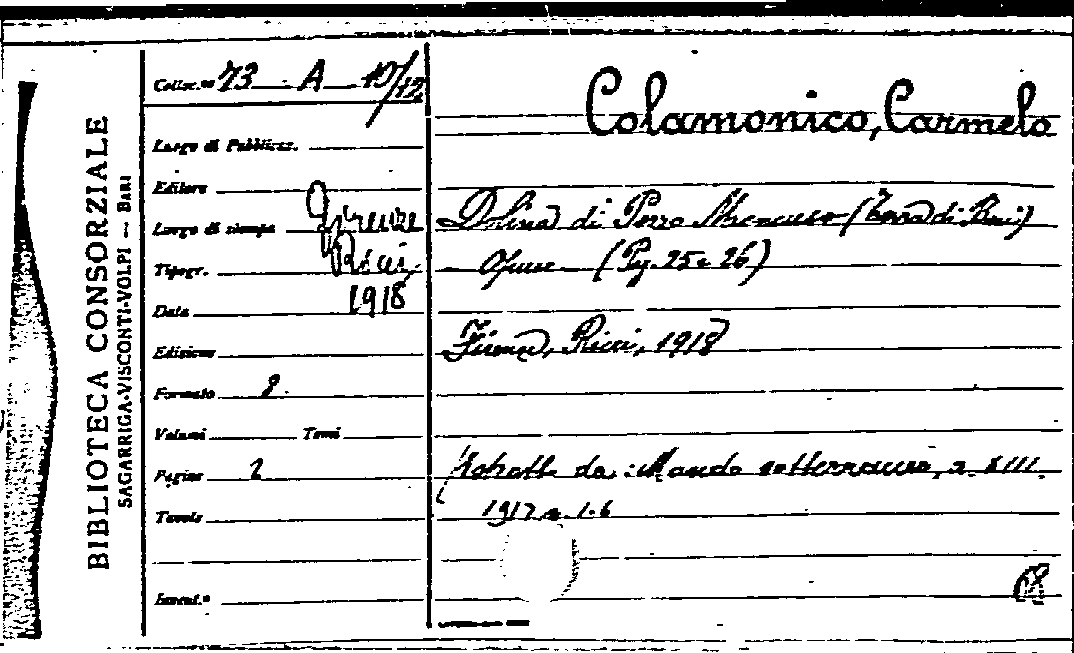 BIBLIOTECA CONSORZIALE
SAGARRIGA-VISCONTI-VOLPI — BARI
Colloc.ne 73 A 10/12
Luogo di Pubblicaz.
Editore
Luogo di stampa Firenze
Tipogr. Ricci
Data 1918
Edizione
Formato 8.
Volumi Tomi
Pagine 2
Tavole
Invent.º
Colamonico, Carmelo
Dolina di Pozzo (Terra di Bari)
(Pag. 25 e 26)
Firenze, Ricci, 1918
(Estratto da: Mondo sotterraneo, a. XIII.
1917 n. 1-6